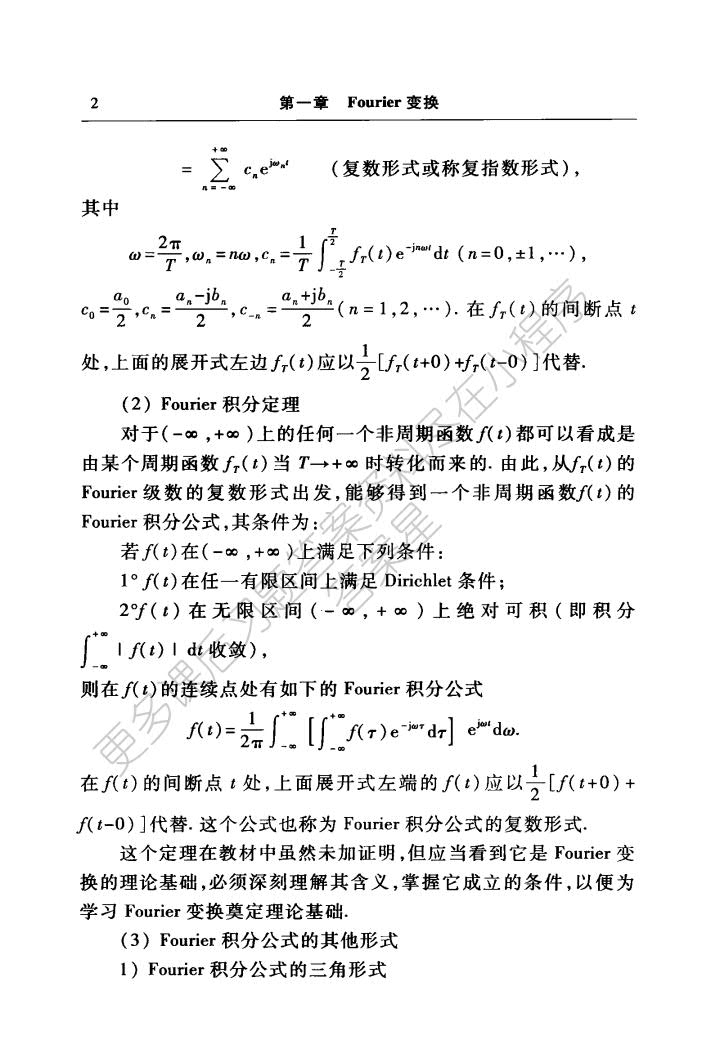 2 第一章 Fourier 变换
= \sum_{n=-∞}^{+∞} c_n e^{jω_n t} (复数形式或称复指数形式),
其中
ω=\frac{2π}{T},ω_n=nω,c_n=\frac{1}{T}\int_{-\frac{T}{2}}^{\frac{T}{2}} f_T(t)e^{-jnωt}dt (n=0,±1,…),
c_0=\frac{a_0}{2},c_n=\frac{a_n-jb_n}{2},c_{-n}=\frac{a_n+jb_n}{2}(n=1,2,…). 在 f_T(t)的间断点 t
处,上面的展开式左边f_T(t)应以\frac{1}{2}[f_T(t+0)+f_T(t-0)]代替.
(2) Fourier 积分定理
对于(-∞,+∞)上的任何一个非周期函数f(t)都可以看成是
由某个周期函数 f_T(t)当 T→+∞ 时转化而来的. 由此,从f_T(t)的
Fourier 级数的复数形式出发,能够得到一个非周期函数f(t)的
Fourier 积分公式,其条件为:
若 f(t)在(-∞,+∞)上满足下列条件:
1° f(t)在任一有限区间上满足 Dirichlet 条件;
2°f(t)在无限区间(-∞,+∞)上绝对可积(即积分
\int_{-∞}^{+∞} | f(t) | dt 收敛),
则在 f(t)的连续点处有如下的 Fourier 积分公式
f(t)=\frac{1}{2π}\int_{-∞}^{+∞} [\int_{-∞}^{+∞} f(τ)e^{-jωτ}dτ] e^{jωt}dω.
在 f(t)的间断点 t 处,上面展开式左端的 f(t)应以\frac{1}{2}[f(t+0)+
f(t-0)]代替. 这个公式也称为 Fourier 积分公式的复数形式.
这个定理在教材中虽然未加证明,但应当看到它是 Fourier 变
换的理论基础,必须深刻理解其含义,掌握它成立的条件,以便为
学习 Fourier 变换奠定理论基础.
(3) Fourier 积分公式的其他形式
1) Fourier 积分公式的三角形式
更多课后习题答案资料尽在小程序
答案星